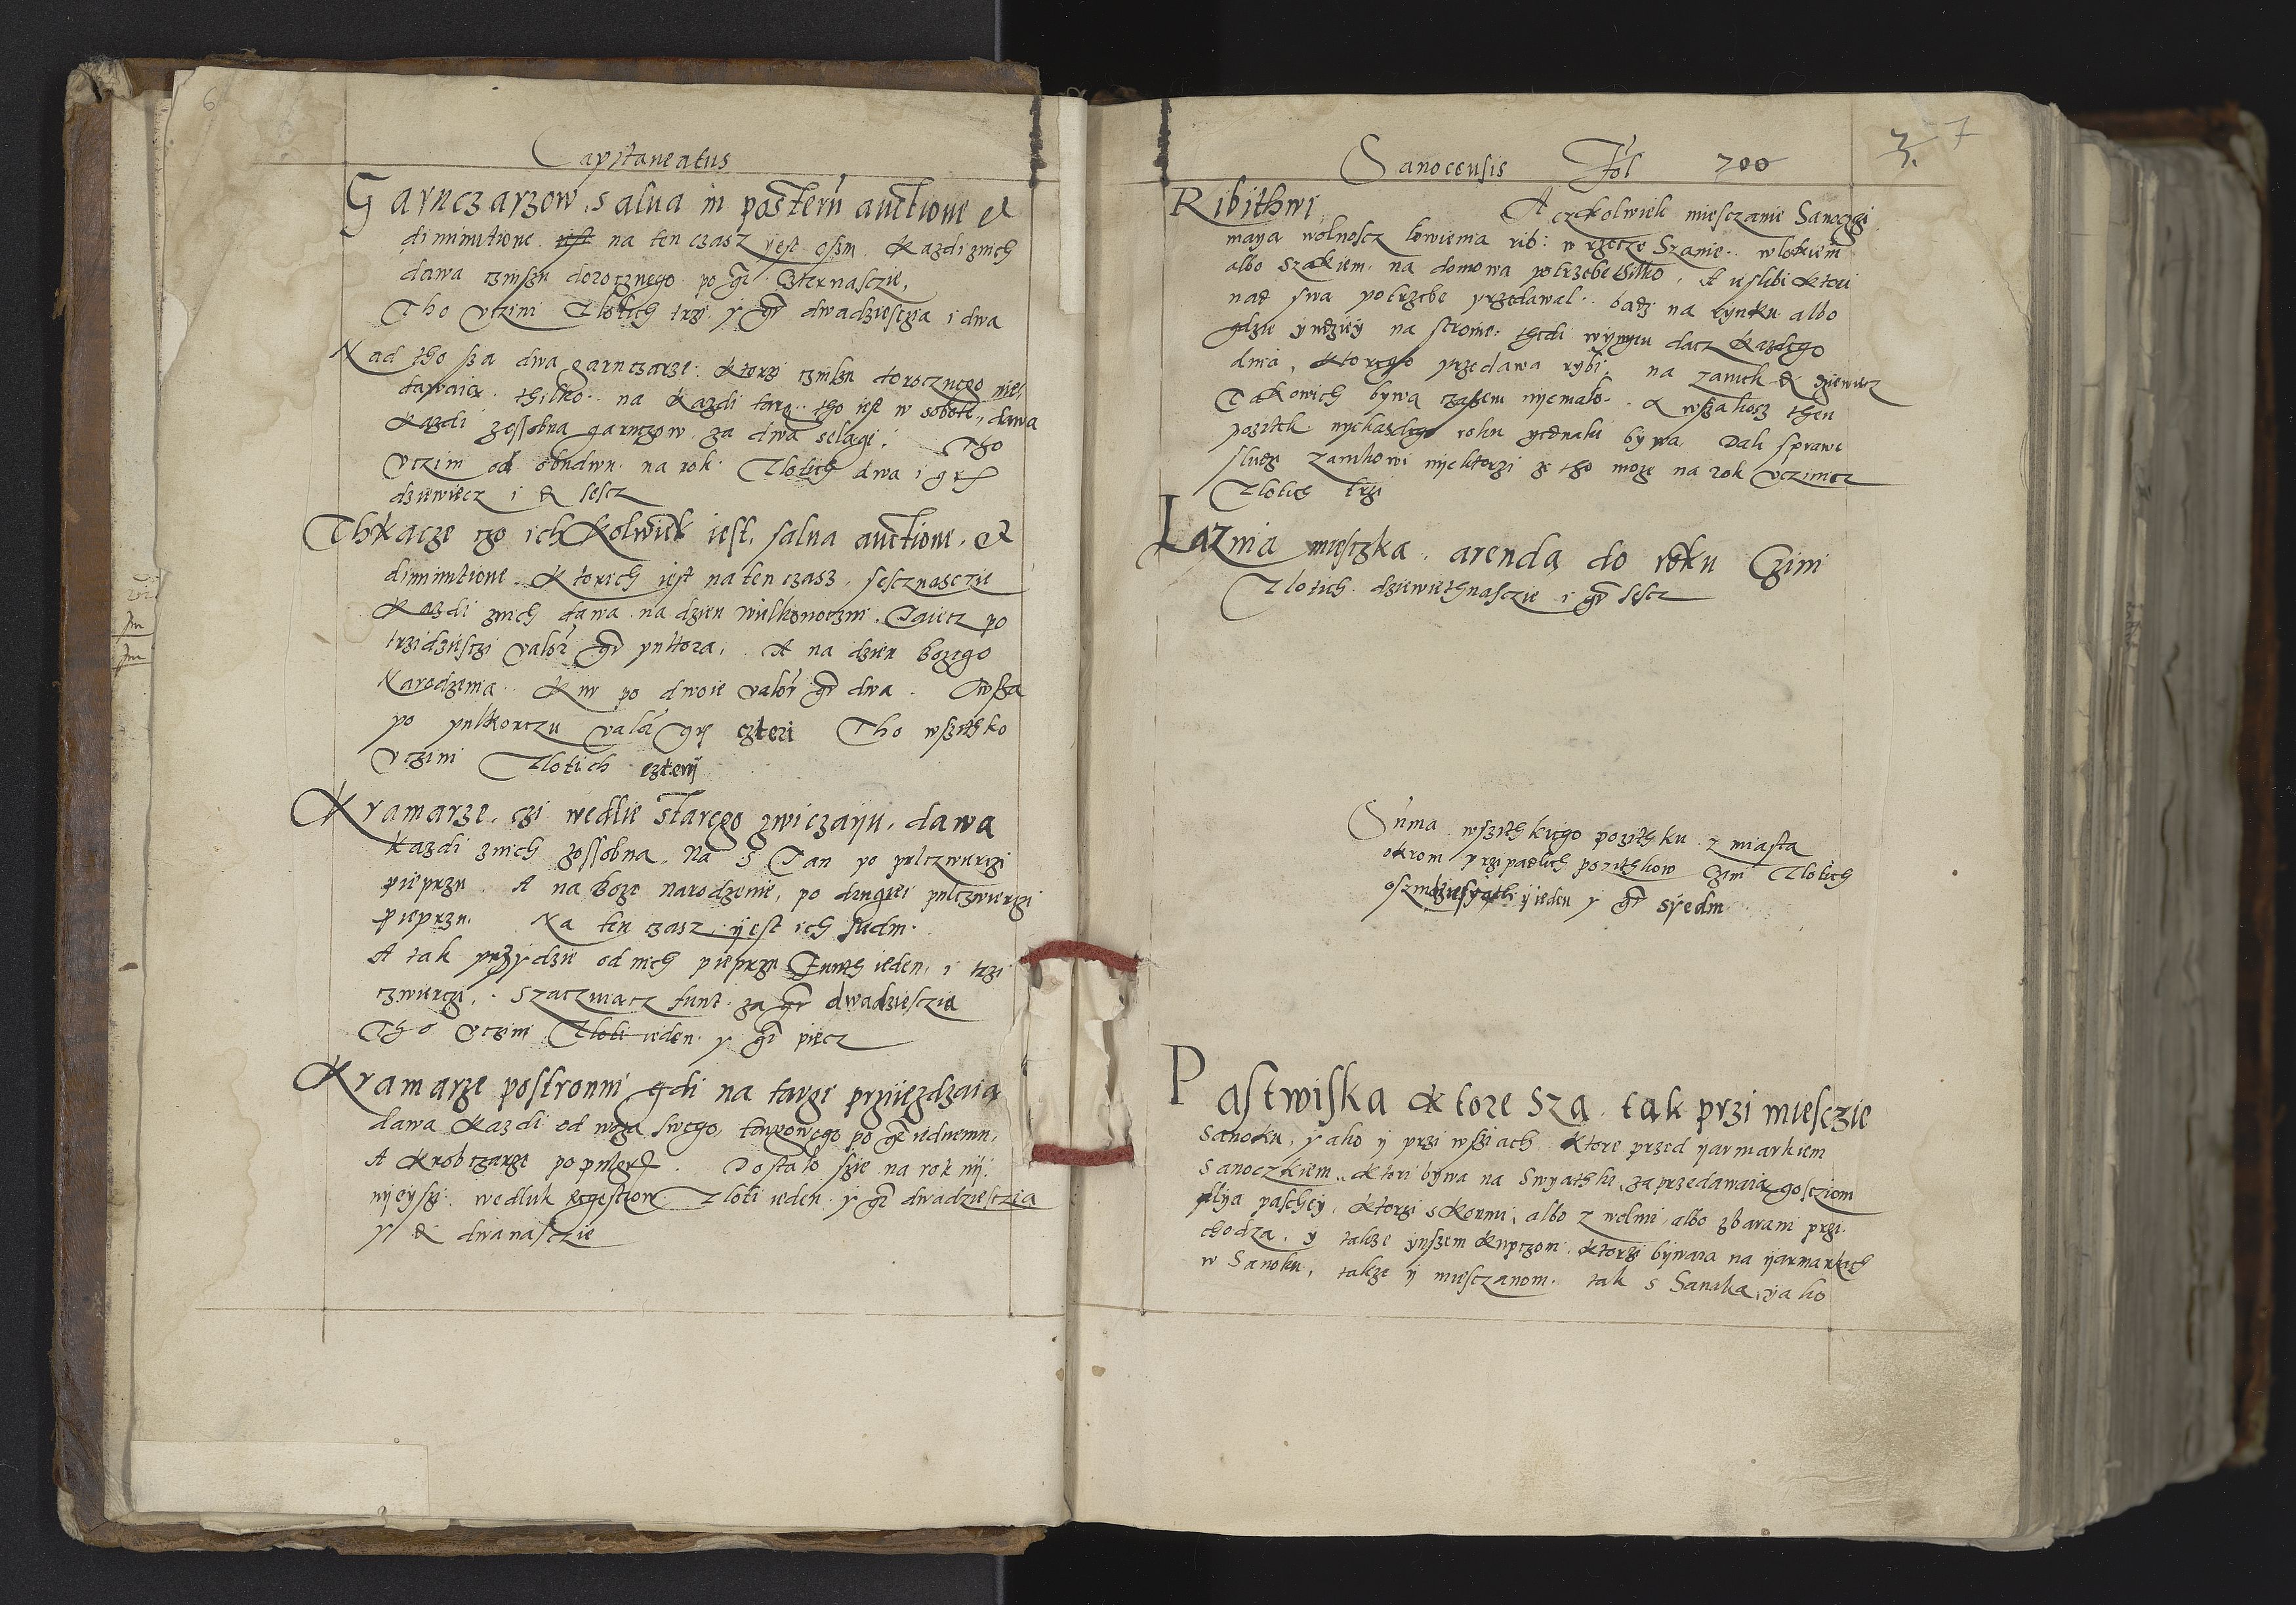 6
Capitaneatus
Garnczarzow, salva in posterum auctione et
diminutione na ten czasz yest osm. Kazdi znich
dawa czinszu dorocznego po gr czternasczie,
Tho vczini Zlotich trzi y gr dwadziesczia i dwa
Nad tho sza dwa garnczarze. Ktorzi czinszu dorocznego nie
dawaia. thilko na Kazdi targ tho iest w sobote, dawa
Kazdi zossobna garnczow za dwa selagi. Tho
vczini od obudwu na rok Zlotich dwa i gr
dziewiecz i d sescz
Thkacze czo ich Kolwiek iest, salva auctione, et
diminutione. Ktorich iest na ten czasz sescznasczie
Kazdi znich dawa na dzien Wielkonoczni. Jaiecz po
trzidziesczi valor gr pultora. A na dzien Bozego
Narodzenia. Kur po dwoie valor gr dwa. Owsza
po pulkorczu valor gr czteri Tho wszithko
vczini Zlotich czterij
Kramarze, czi wedlie starego zwiczaiju, dawa
Kazdi znich zossobna. Na S Jan po pulczwierczi
pieprzu. A na Boze narodzenie, po drugiei pulczwierczi
pieprzu. Na ten czasz yest ich siedm.
A tak przydzie od nich pieprzu Funth ieden, i trzi
czwierczi, Szaczuiacz funt za gr dwadziesczia
Tho vczini Zloti ieden y gr piecz
Kramarze postronni gdi na targi przijezdzaia
dawa Kazdi od woza swego, towarowego po gr iednemu,
A Krobczarze po pulgr. Dostalo szie na rok nij
nijeyszi wedluk regestrow Zloti ieden y gr dwadziesczia
y d dwanasczie
Sanocensis Fol 700
3. 7
Ribithwi Aczkolwiek miesczanie Sanoczgi
maya wolnoscz lowienia rib: w rzecze Szanie. wlokiem
albo Szakiem. na domowa potrzebe tilko, A ieslibi ktori
nad swa potrzebe przedawal. badz na rynku albo
gdzie yndziey na stronie. thedi winyen dacz Kazdego
dnia, Ktorego przedawa rybi, na zamek d dziewiecz
Takowich bywa czasem nyemalo. A wszakosz then
pozitek nyekazdego roku yednaki bywa Dali sprawe
sludzi zamkowi nyektorzi ze tho moze na rok vczinicz
Zlotich trzi
Laznia miesczka. arenda do roku Czini
Zlotich dziewiethnasczie i gr sescz
Suma wszithkiego pozithku z miasta
okrom przipadlich pozithkow Czini Zlotich
oszmdziesyath yieden y gr syedm
Pastwiska Ktore Sza tak przi miesczie
Sanoku, yako y przi wsziach Ktore przed yarmarkiem
Sanoczkiem, Ktori bywa na Swyathki, zaprzedawaia gosciom
dlya paschey, Ktorzi s Konmi, albo z wolmi, albo zbarani przi
chodza, y takze ynszem Kupczom. Ktorzi bywaia na yarmarkach
w Sanoku, takze y miesczanom. tak s Sanoka, yako